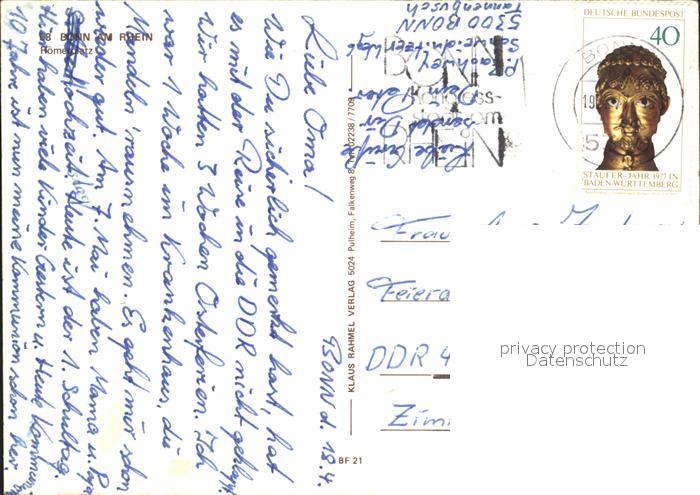 68 BONN AM RHEIN
Römerplatz
BONN d. 18.4.
Liebe Oma!
Wie Du sicherlich gemerkt hast, hat
es mit der Reise in die DDR nicht geklappt.
Wir hatten 3 Wochen Osterferien. Ich
war 1 Woche im Krankenhaus, die
Mandeln 'rausnehmen. Es geht mir schon
wieder gut. Am 7. Mai haben Mama u. Papa
Hochzeit. Heute ist der 1. Schultag.
Wir haben viel Kinder Gestern u. Heute Kommun
10 Jahre ist nun meine Kommunion schon her.
Liebe Grüße
sendet Dir
Dein Peter
5300 BONN
Tannenbusch
KLAUS RAHMEL VERLAG 5024 Pulheim, Falkenweg 8, 02238/7709
BF 21
BONN
DEUTSCHE BUNDESPOST
40
STAUFER-JAHR 1977 IN
BADEN-WÜRTTEMBERG
BONN
5
Frau
DDR 4
privacy protection
Datenschutz